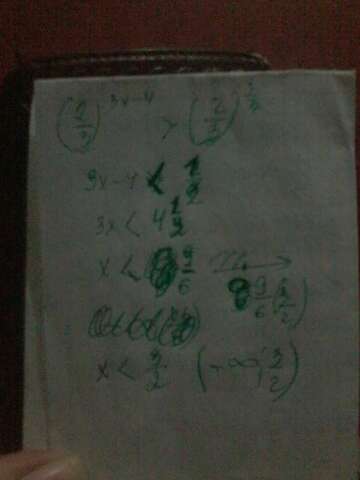 (2/3)^3x-4 > (2/3)^1/2
3x-4 < 1/2
3x < 4 1/2
x < 9/6
9/6 (3/2)
x < 3/2 (-∞; 3/2)